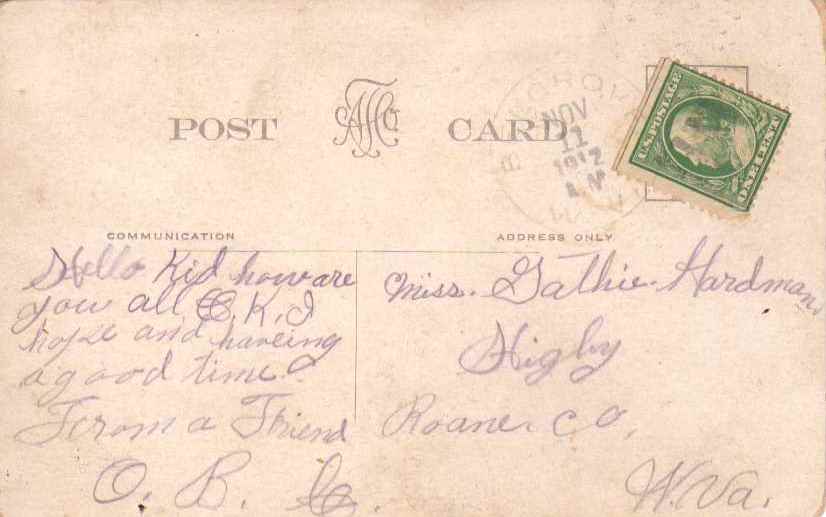 POST CARD
NOV
11
1912
A.M.
U.S. POSTAGE
ONE CENT
COMMUNICATION
ADDRESS ONLY
Hello Kid how are
you all O.K. I
hope and haveing
a good time.
From a Friend
O. B.
Miss. Gathie Hardman,
Higby
Roane. Co.
W.Va.